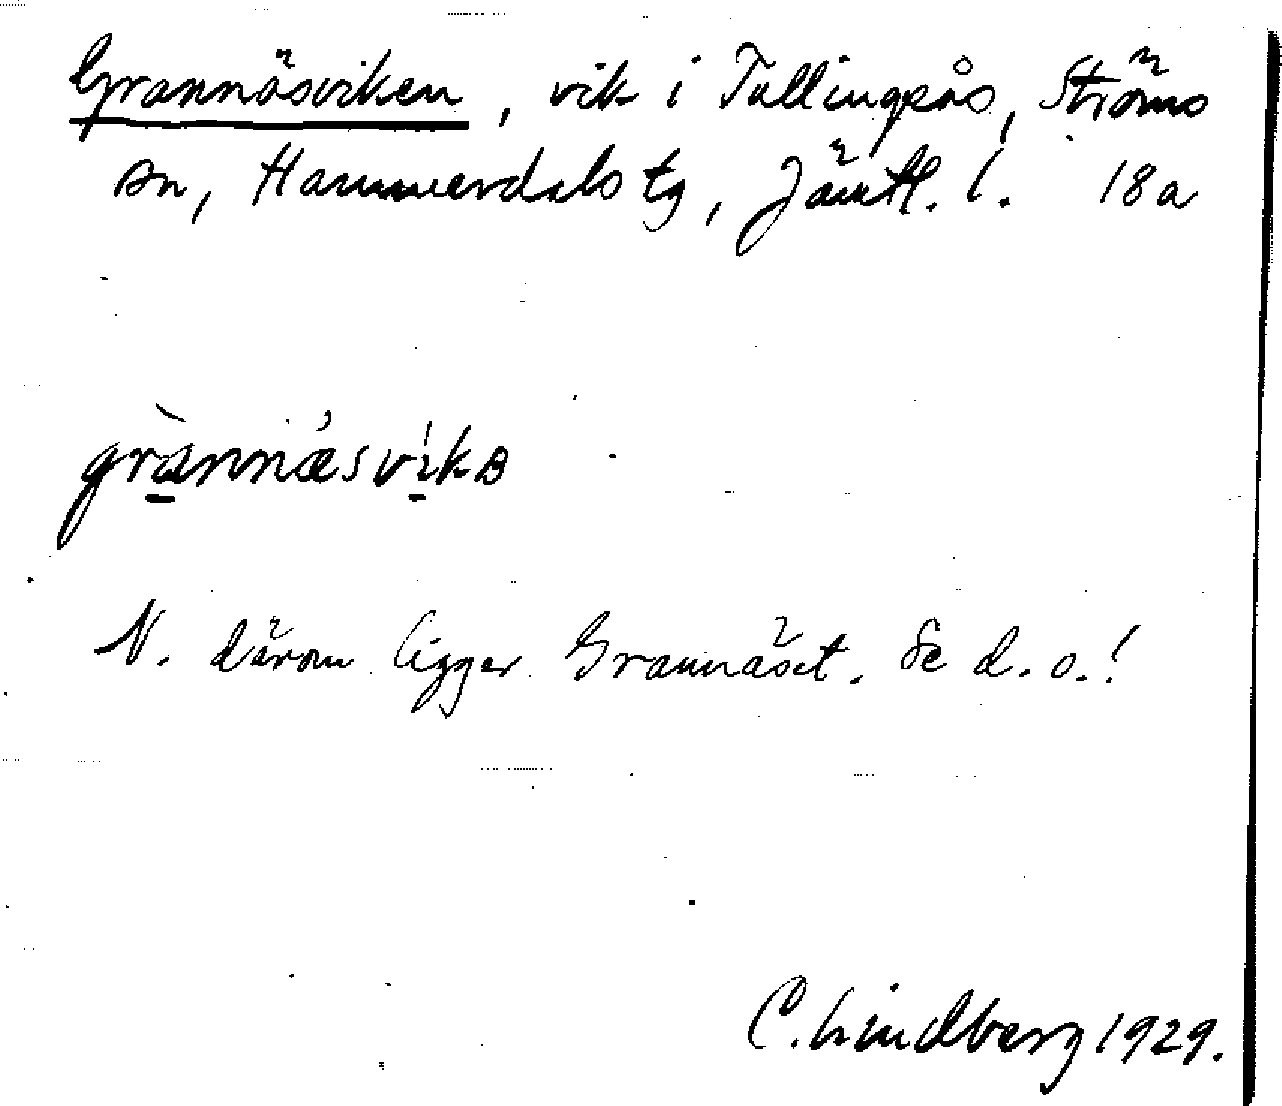 Grannäsviken, vik i Tullingsås, Ströms
sn, Hammerdals tg, Jämtl. l. 18a
grànnǽsvíkɞ
N. därom ligger Grannäset. Se d. o.!
C. Lindberg 1929.